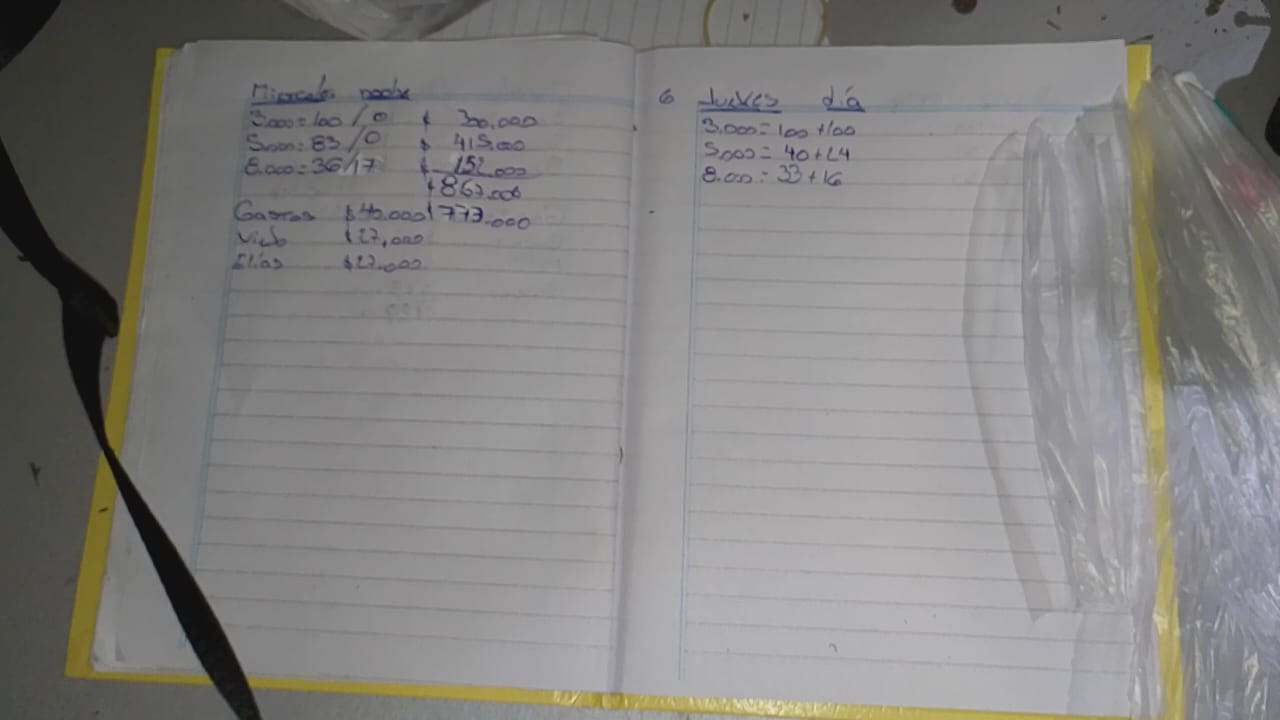 Miercoles noche
3.000=100/0 $ 300.000
5.000=83/0 $ 415.000
8.000=36/17 $ 152.000
$867.000
Gastos $40.000 773.000
Viejo $27.000
Elias $27.000
6 Jueves día
3.000=100+100
5.000=40+24
8.000=33+16